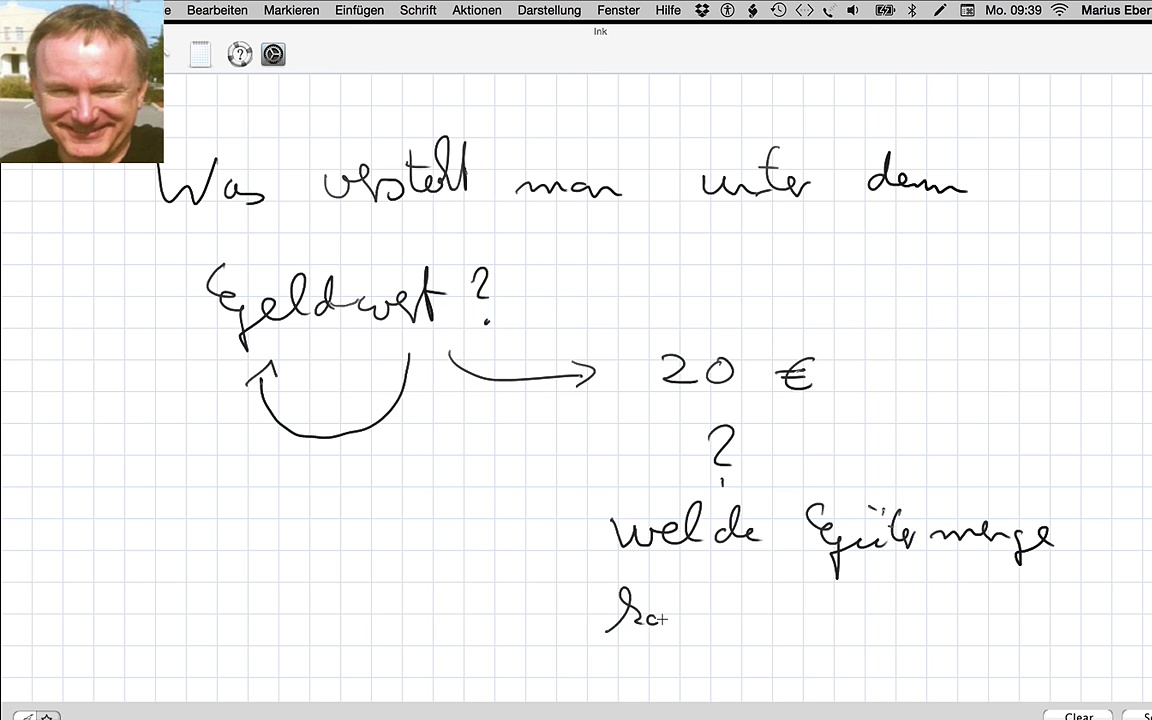 Bearbeiten Markieren Einfügen Schrift Aktionen Darstellung Fenster Hilfe Mo. 09:39 Marius Eber
Ink
Was versteht man unter dem
Geldwert?
20 €
?
welche Gütermenge
ka
Clear